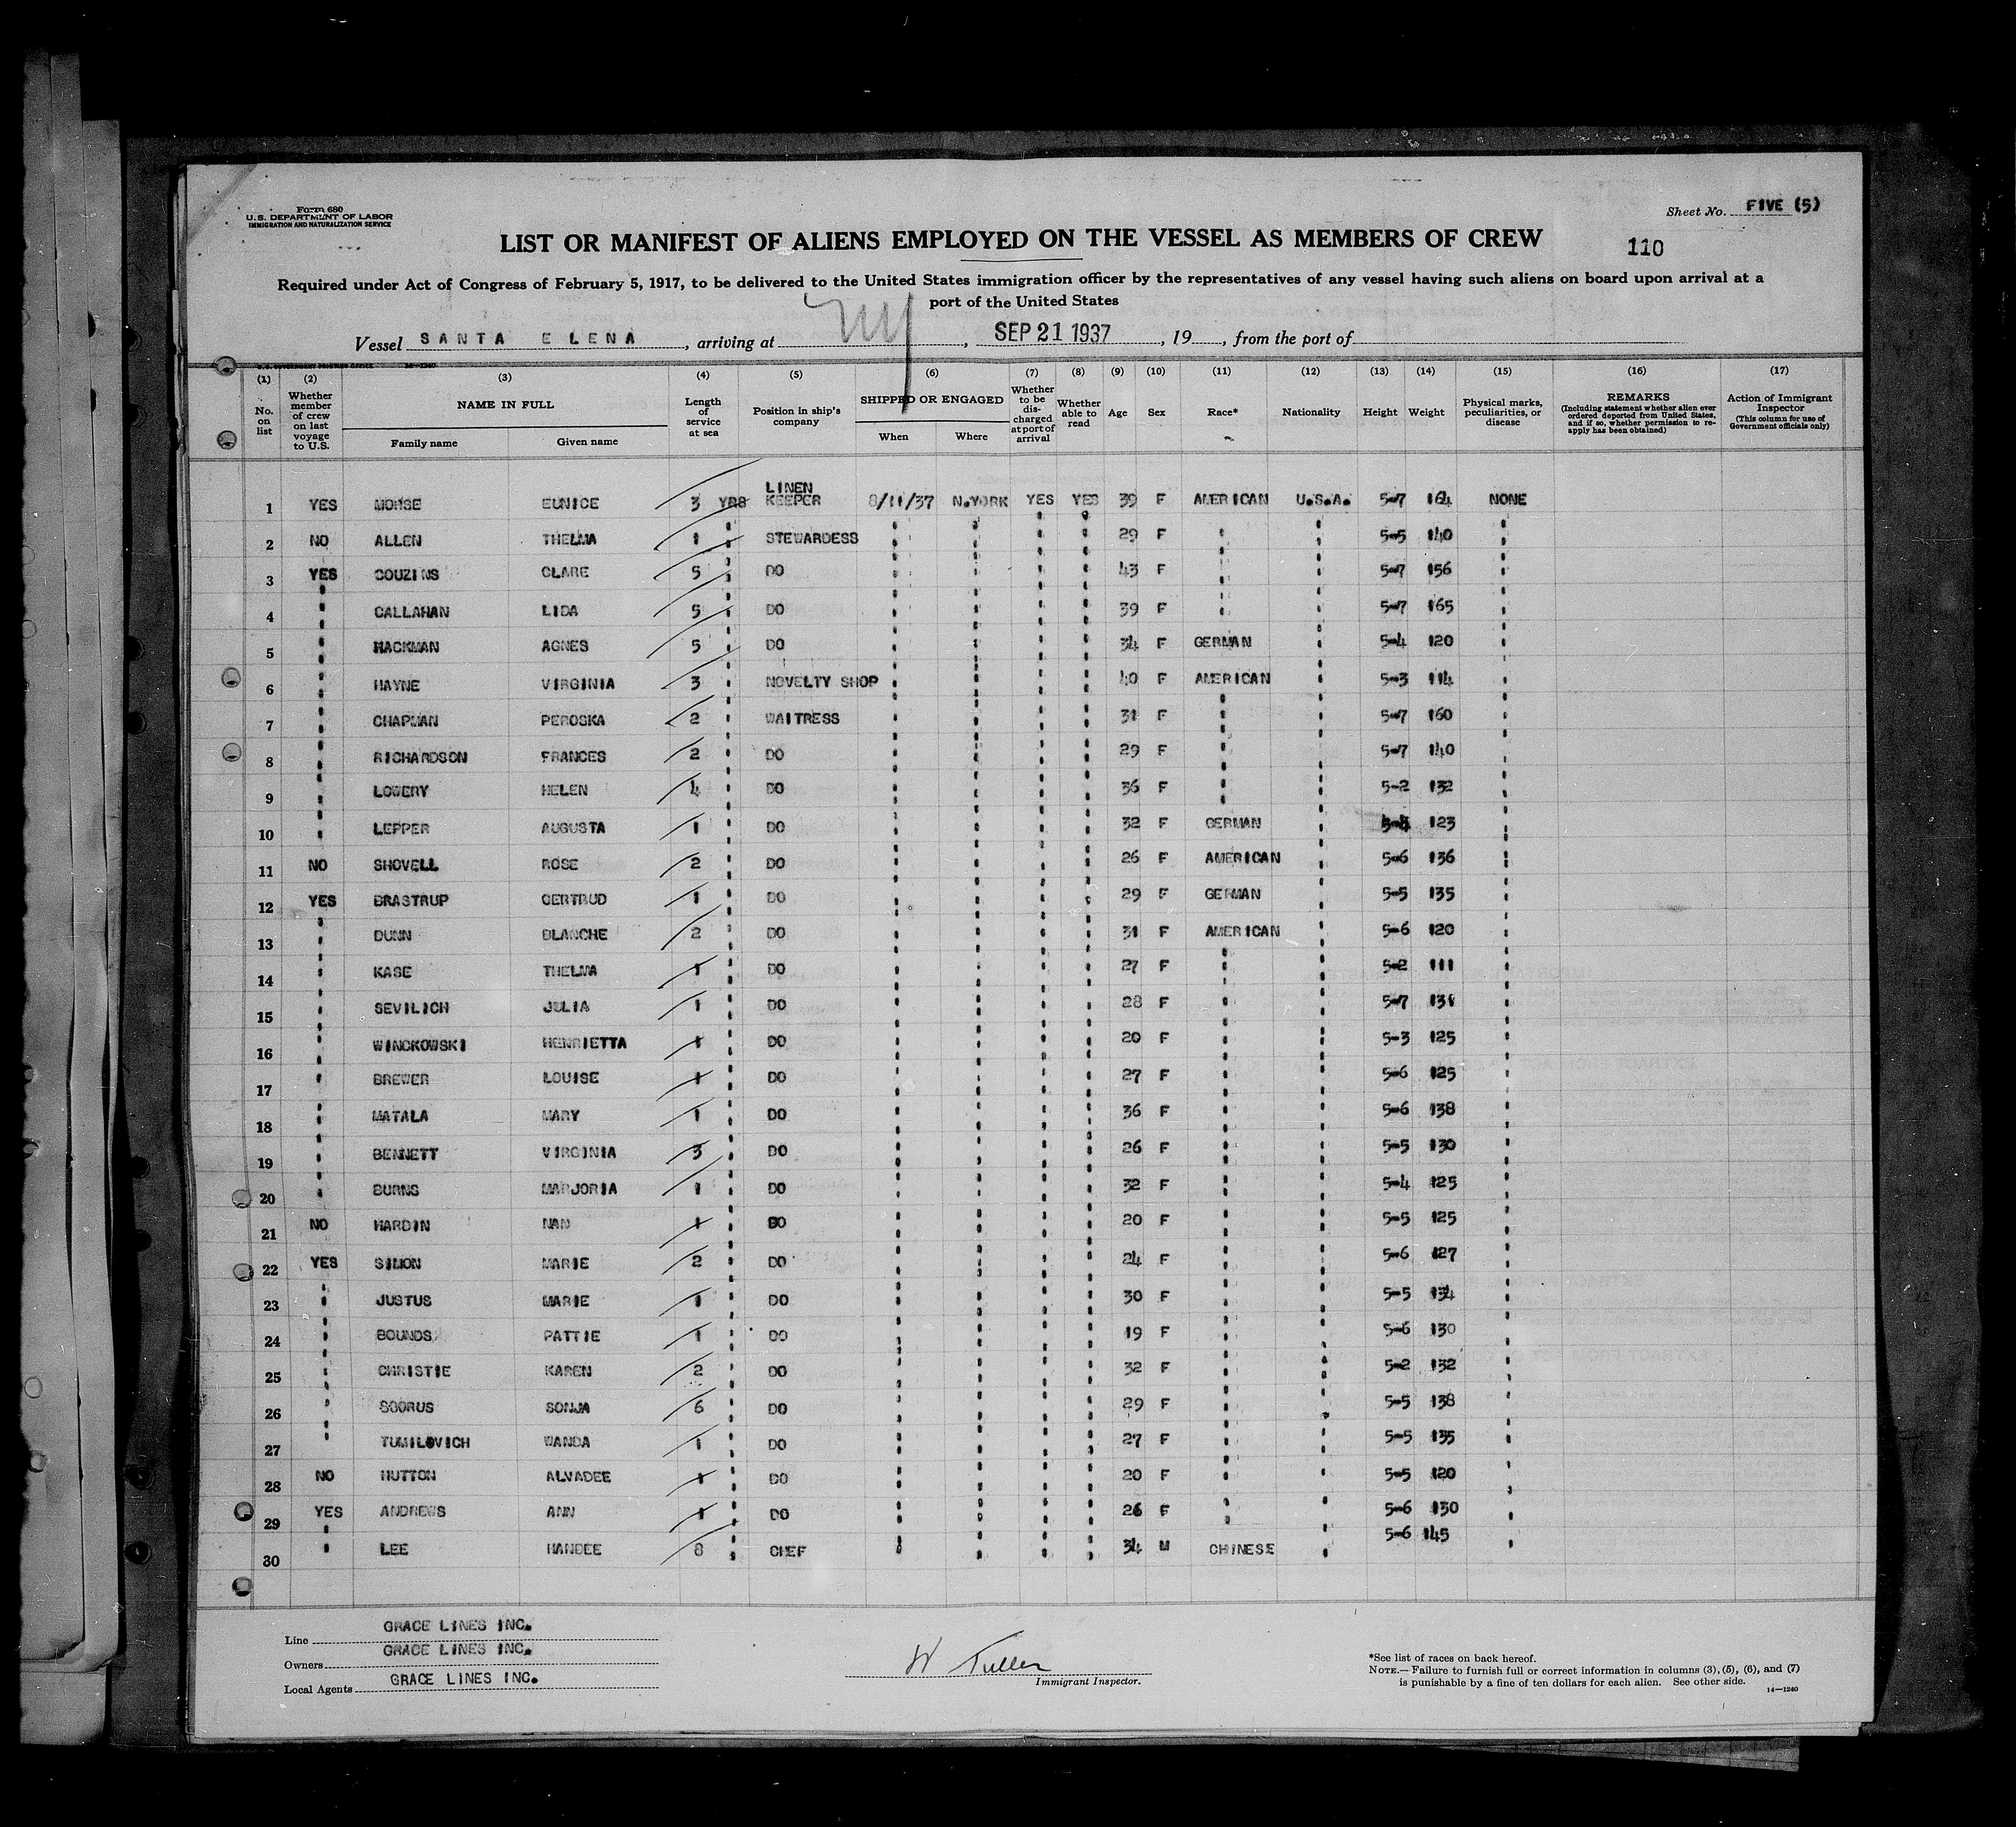 Form 680
U.S. DEPARTMENT OF LABOR
IMMIGRATION AND NATURALIZATION SERVICE
Sheet No. FIVE (5)
LIST OR MANIFEST OF ALIENS EMPLOYED ON THE VESSEL AS MEMBERS OF CREW
110
Required under Act of Congress of February 5, 1917, to be delivered to the United States immigration officer by the representatives of any vessel having such aliens on board upon arrival at a
port of the United States
Vessel SANTA ELENA, arriving at NY, SEP 21 1937, 19, from the port of
U.S. GOVERNMENT PRINTING OFFICE 14—1240
(1) (2) (3) (4) (5) (6) (7) (8) (9) (10) (11) (12) (13) (14) (15) (16) (17)
No. on list
Whether member of crew on last voyage to U.S.
NAME IN FULL
Family name
Given name
Length of service at sea
Position in ship's company
SHIPPED OR ENGAGED
When
Where
Whether to be discharged at port of arrival
Whether able to read
Age
Sex
Race*
Nationality
Height
Weight
Physical marks, peculiarities, or disease
REMARKS
(Including statement whether alien ever ordered deported from United States, and if so, whether permission to reapply has been obtained)
Action of Immigrant Inspector
(This column for use of Government officials only)
1 YES MORSE EUNICE 3 YRS LINEN KEEPER 8/11/37 N.YORK YES YES 39 F AMERICAN U.S.A. 5-7 164 NONE
2 NO ALLEN THELMA 1 " STEWARDESS " " " " 29 F " " 5-5 140 "
3 YES COUZINS CLARE 5 " DO " " " " 43 F " " 5-7 156 "
4 " CALLAHAN LIDA 5 " DO " " " " 39 F " " 5-7 165 "
5 " HACKMAN AGNES 5 " DO " " " " 34 F GERMAN " 5-4 120 "
6 " HAYNE VIRGINIA 3 " NOVELTY SHOP " " " " 40 F AMERICAN " 5-3 114 "
7 " CHAPMAN PEROSKA 2 " WAITRESS " " " " 31 F " " 5-7 160 "
8 " RICHARDSON FRANCES 2 " DO " " " " 29 F " " 5-7 140 "
9 " LOWERY HELEN 4 " DO " " " " 36 F " " 5-2 132 "
10 " LEPPER AUGUSTA 1 " DO " " " " 32 F GERMAN " 123 "
11 NO SHOVELL ROSE 2 " DO " " " " 26 F AMERICAN " 5-6 136 "
12 YES BRASTRUP GERTRUD 1 " DO " " " " 29 F GERMAN " 5-5 135 "
13 " DUNN BLANCHE 2 " DO " " " " 31 F AMERICAN " 5-6 120 "
14 " KASE THELMA 1 " DO " " " " 27 F " " 5-2 111 "
15 " SEVILICH JULIA 1 " DO " " " " 28 F " " 5-7 131 "
16 " WINCKOWSKI HENRIETTA 1 " DO " " " " 20 F " " 5-3 125 "
17 " BREWER LOUISE 1 " DO " " " " 27 F " " 5-6 125 "
18 " MATALA MARY 1 " DO " " " " 36 F " " 5-6 138 "
19 " BENNETT VIRGINIA 3 " DO " " " " 26 F " " 5-5 130 "
20 " BURNS MARJORIA 1 " DO " " " " 32 F " " 5-4 125 "
21 NO HARDIN NAN 1 " DO " " " " 20 F " " 5-5 125 "
22 YES SIMON MARIE 2 " DO " " " " 24 F " " 5-6 127 "
23 " JUSTUS MARIE 1 " DO " " " " 30 F " " 5-5 134 "
24 " BOUNDS PATTIE 1 " DO " " " " 19 F " " 5-6 130 "
25 " CHRISTIE KAREN 2 " DO " " " " 32 F " " 5-2 132 "
26 " SOORUS SONJA 6 " DO " " " " 29 F " " 5-5 138 "
27 " TUMILOVICH WANDA 1 " DO " " " " 27 F " " 5-5 135 "
28 NO HUTTON ALVADEE 1 " DO " " " " 20 F " " 5-5 120 "
29 YES ANDREWS ANN 1 " DO " " " " 26 F " " 5-6 130 "
30 " LEE HANDEE 8 " CHEF " " " " 34 M CHINESE " 5-6 145 "
Line GRACE LINES INC.
Owners GRACE LINES INC.
Local Agents GRACE LINES INC.
W Fuller
Immigrant Inspector.
*See list of races on back hereof.
NOTE.—Failure to furnish full or correct information in columns (3), (5), (6), and (7)
is punishable by a fine of ten dollars for each alien. See other side.
14—1240